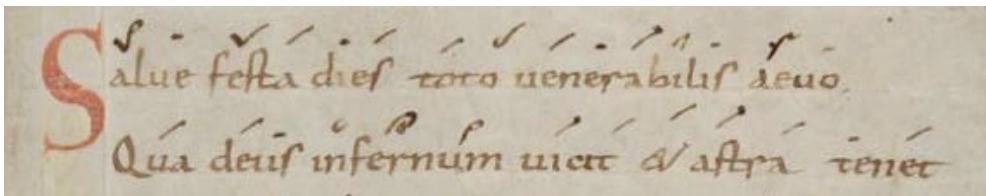 Salue festa dies toto uenerabilis aeuo.
Qua deus infernum uicit & astra tenet